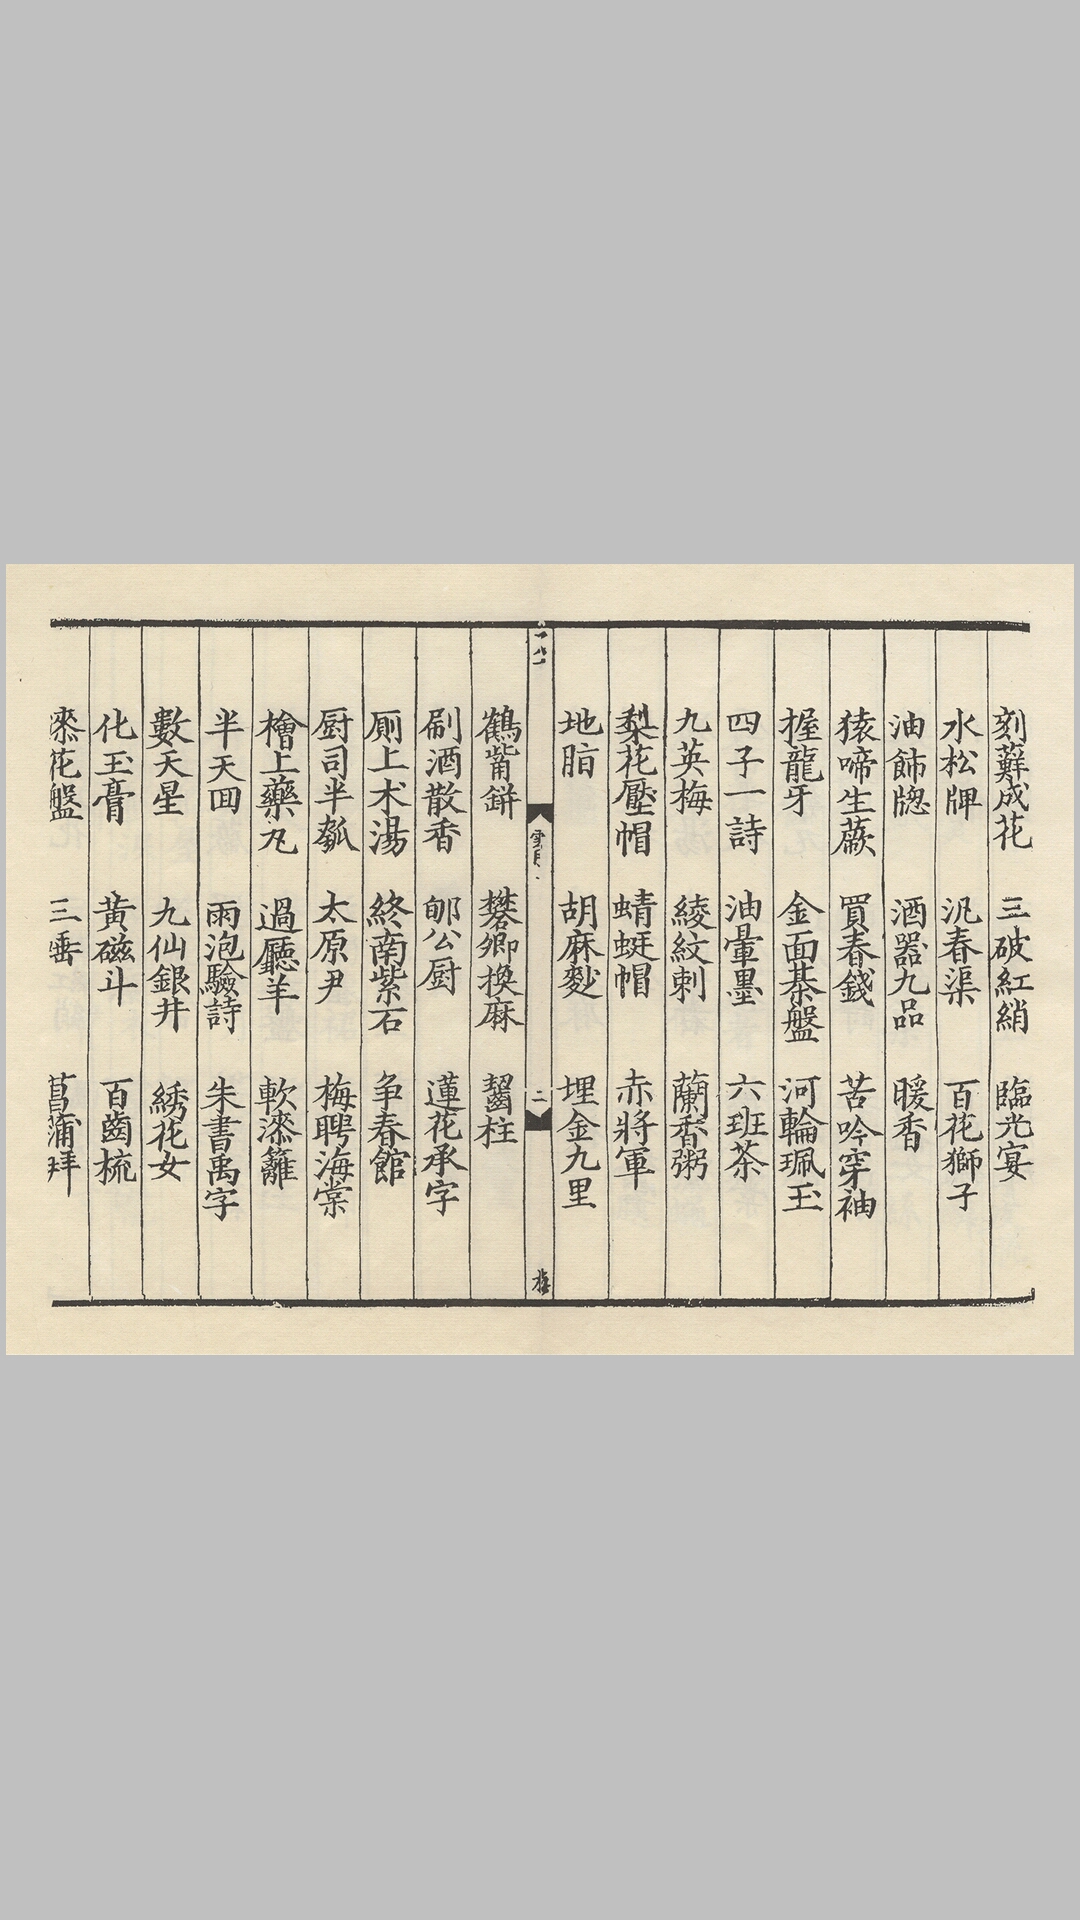 刻蘚成花 三破紅綃 臨光宴
水松牌 汎春渠 百花獅子
油飾牕 酒器九品 暖香
猿啼生蕨 買春錢 苦吟穿袖
握龍牙 金面棊盤 河輪珮玉
四子一詩 油暈墨 六班茶
九英梅 綾紋刺 蘭香粥
梨花壓帽 蜻蜓帽 赤將軍
地脂 胡麻麨 埋金九里
雲
二
鶴觜缾 礬卿換麻 齧柱
刷酒散香 郇公厨 蓮花承字
厠上术湯 終南紫石 争春館
厨司半瓠 太原尹 梅聘海棠
檜上藥丸 過廳羊 軟漆籬
半天回 雨泡驗詩 朱書禹字
數天星 九仙銀井 綉花女
化玉膏 黃磁斗 百齒梳
花盤 三 菖蒲拜